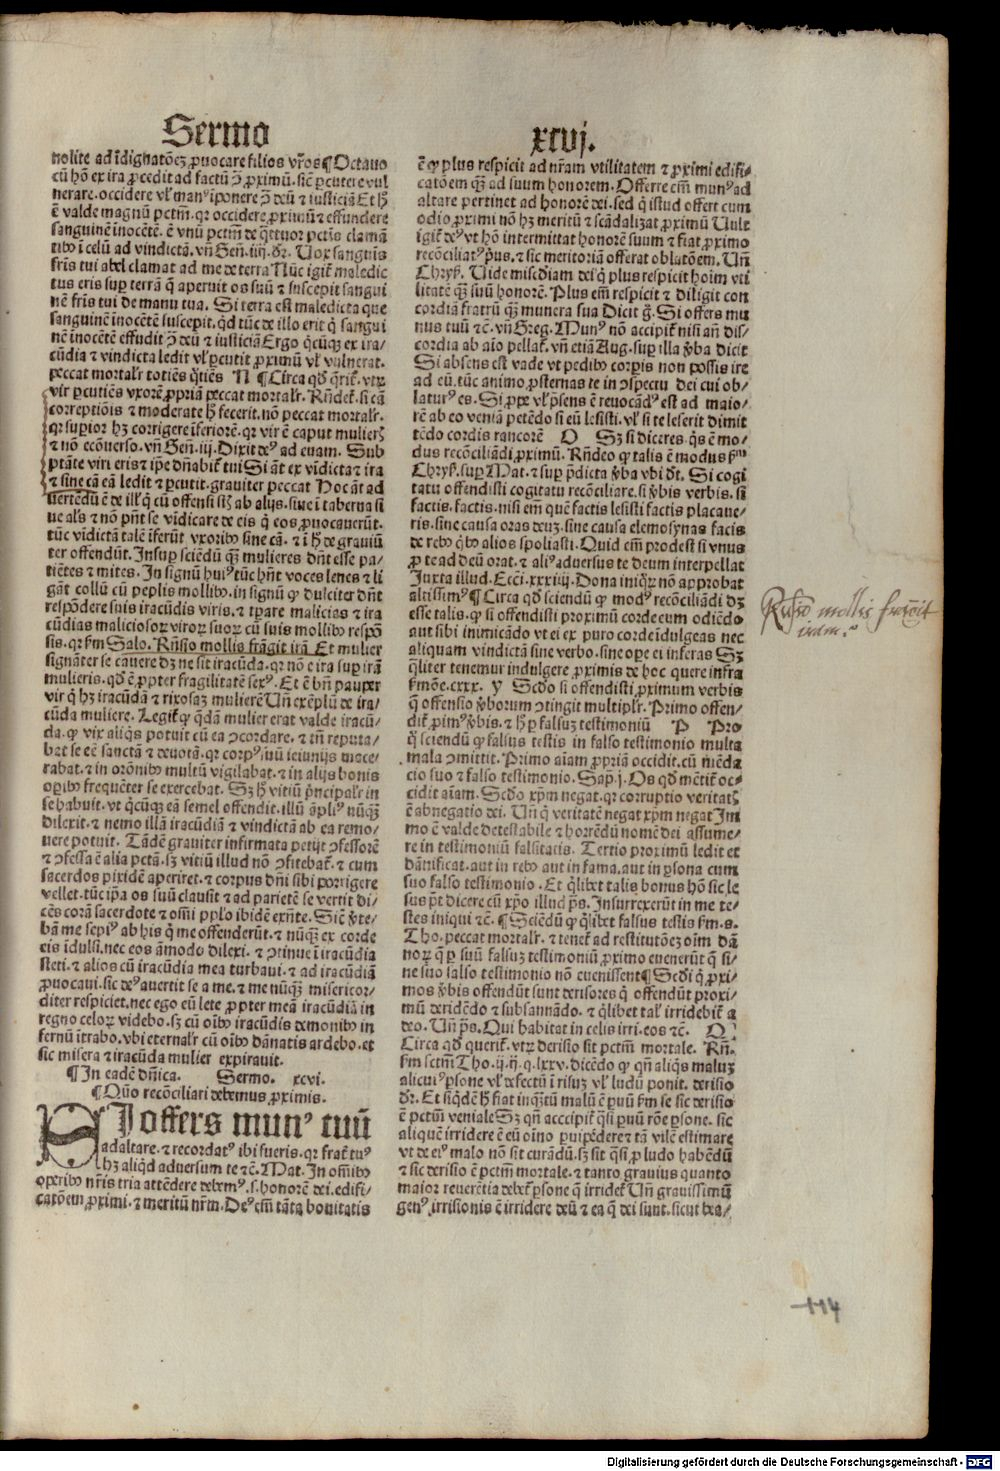 Sermo xcvj.
nolite ad īdignatōeꝫ ꝓuocare filios vr̄os ¶ Octauo
cū hō ex ira ꝓcedit ad factū ꝯ̄ ꝓximū. sic̄ ꝑcutere vul
nerare. occidere vl̓ manꝰ īponere ꝯ̄ deū ⁊ iusticiā Et h̄
ē valde magnū pctm̄. qr occidere ꝓximū ⁊ effundere
sanguinē inocētē. ē vnū pctm̄ de q̄ttuor pctīs clamā
tibꝰ ī celū ad vindictā. vn̄ Gen̄. iiij. dr̄. Uox sanguīs
fr̄is tui abel clamat ad me de terra Nūc igit̄ maledic
tus eris suꝑ terrā q̄ aperuit os suū ⁊ suscepit sangui
nē fr̄is tui de manu tua. Si terra est maledicta que
sanguinē inocētē suscepit. qd̓ tūc de illo erit q̄ sangui
nē inocētē effudit ꝯ̄ deū ⁊ iusticiā Ergo q̄cūqꝫ ex ira/
cūdia ⁊ vindicta ledit vl̓ ꝑcutit ꝓximū vl̓ vulnerat.
peccat mortalr̓ totiēs q̄tiēs N ¶ Circa qd̓ q̄rit̄. vtꝝ
vir ꝑcutiēs vxorē ꝓpriā peccat mortalr̓. Rn̄det̄. si cā
correptiōis ⁊ moderate h̄ fecerit. nō peccat mortalr̓.
qr suꝑior hꝫ corrigere īferiorē. qr vir ē caput mulierꝭ
⁊ nō ecōuerso. vn̄ Gen̄. iij. Dixit deꝰ ad euam. Sub
ptāte viri eris ⁊ ip̄e dn̄abit̄ tui Si āt ex vīdicta ⁊ ira
⁊ sine cā eā ledit ⁊ ꝑcutit. grauiter peccat Hoc āt ad
uertēdū ē de ill̓ q̄ cū offensi sīt ab alijs. siue ī taberna si
ue al̓s ⁊ nō pn̄t se vīdicare de eis q̄ eos ꝓuocauerūt.
tūc vīdictā talē īferūt vxoribꝰ sine cā. ⁊ ī h̄ de grauiū
ter offendūt. Insuꝑ sciēdū qꝫ̄ mulieres dn̄t esse pa/
tiētes ⁊ mites. In signū huiꝰ tūc hn̄t voces lenes ⁊ li
gāt collū cū peplis mollibꝰ. in signū ꝙ dulciter dn̄t
respōdere suis iracūdis viris. ⁊ tꝑare malicias ⁊ ira
cūdias maliciosoꝝ viroꝝ suoꝝ cū suis mollibꝰ respō
sis. qr fm̄ Salo. Rn̄sio mollis frāgit irā Et mulier
signāter se cauere dꝫ ne sit iracūda. qr nō ē ira suꝑ irā
mulieris. qd̓ ē ꝓpter fragilitatē sexꝰ. Et ē bn̄ pauper
vir q̄ hꝫ iracūdā ⁊ rixosaꝫ mulierē Un̄ exēplū de ira/
cūda muliere. Legit̄ ꝙ q̄dā mulier erat valde iracū/
da. ꝙ vix aliq̄s potuit cū ea ꝯcordare. ⁊ tn̄ reputa/
bat se eē sanctā ⁊ deuotā. qr corpꝰ suū ieiunijs mace/
rabat. ⁊ in orōnibꝰ multū vigilabat. ⁊ in alijs bonis
oꝑibꝰ frequēter se exercebat. Sꝫ h̄ vitiū pn̄cipalr̓ in
se habuit. vt q̄cūqꝫ eā semel offendit. illū āpliꝰ nūqꝫ̄
dilexit. ⁊ nemo illā iracūdiā ⁊ vindictā ab ea remo/
uere potuit. Tādē grauiter infirmata petijt ꝯfessorē
⁊ ꝯfessa ē alia pctā. sꝫ vitiū illud nō ꝯfitebat̄. ⁊ cum
sacerdos pixidē aperiret. ⁊ corpus dn̄i sibi porrigere
vellet. tūc ip̄a os suū clausit ⁊ ad parietē se vertit di/
cēs corā sacerdote ⁊ om̄i pplo ibidē exn̄te. Sic̄ vte/
bā me sepiꝰ ab his q̄ me offenderūt. ⁊ nūqꝫ̄ ex corde
eis īdulsi. nec eos āmodo dilexi. ⁊ ꝯtinue ī iracūdia
steti. ⁊ alios cū iracūdia mea turbaui. ⁊ ad iracūdiā
ꝓuocaui. sic deꝰ auertit se a me. ⁊ me nūqꝫ̄ misericor/
diter respiciet. nec ego eū lete ꝓpter meā iracūdiā in
regno celoꝝ videbo. sꝫ cū oībꝰ iracūdis demonibꝰ in
fernū ītrabo. vbi eternalr̓ cū oībꝰ dānatis ardebo. et
sic misera ⁊ iracūda mulier expirauit.
¶ In eadē dn̄ica. Sermo. xcvi.
¶ Quō recōciliari debemus ꝓximis.
SI offers munꝰ tuū
ad altare. ⁊ recordatꝰ ibi fueris. qr frat̄ tuꝰ
hꝫ aliq̄d aduersum te ⁊c̄. Mat. In om̄ibꝰ
operibꝰ nr̄is tria attēdere debemꝰ. s. honorē dei. edifi/
catōem ꝓximi. ⁊ meritū nr̄m. Deꝰ em̄ tāta bonitatis
ē ꝙ plus respicit ad nr̄am vtilitatem ⁊ ꝓximi edifi/
catōem qꝫ̄ ad suum honorem. Offerre em̄ munꝰ ad
altare pertinet ad honorē dei. sed q̄ istud offert cum
odio ꝓximi nō hꝫ meritū ⁊ scādalizat ꝓximū Uult
igit̄ deꝰ vt hō intermittat honorē suum ⁊ fiat ꝓximo
recōciliatꝰ pꝰus. ⁊ sic meritoriā offerat oblatōem. Un̄
Chryſ. Uide misc̄diam dei q̄ plus respicit hoīm vti
litatē qꝫ̄ suū honorē. Plus em̄ respicit ⁊ diligit con
cordiā fratrū qꝫ̄ munera sua Dicit g̊. Si offers mu
nus tuū ⁊c̄. vn̄ Greg. Munꝰ nō accipit̄ nisi an̄ dis/
cordia ab aīo pellat̄. vn̄ etiā Aug. suꝑ illa v̄ba dicit
Si absens est vade vt pedibꝰ corꝑis non possis ire
ad eū. tūc animo ꝓsternas te in ꝯspectu dei cui ob/
laturꝰ es. Si ꝓpe vl̓ p̄sens ē reuocādꝰ est ad maio/
rē ab eo veniā petēdo si eū lesisti. vl̓ si te leserit dimit
tēdo cordis rancorē O Sꝫ si diceres. q̄s ē mo/
dus recōciliādi ꝓximū. Rn̄deo ꝙ talis ē modus fm̄
Chryſ. suꝑ Mat. ⁊ suꝑ p̄dicta v̄ba vbi dt̄. Si cogi
tatu offendisti cogitatu recōciliare. si v̄bis verbis. si
factis. factis. nisi em̄ quē factis lesisti factis placaue/
ris. sine causa oras deuꝫ. sine causa elemosynas facis
de rebꝰ q̄bꝰ alios spoliasti. Quid em̄ prodest si vnus
ꝓ te ad deū orat. ⁊ aliꝰ aduersus te deum interpellat
Iuxta illud. Ecci. xxxiiij. Dona iniqꝝ nō approbat
altissimꝰ ¶ Circa qd̓ sciendū ꝙ modꝰ recōciliādi dꝫ
esse talis. ꝙ si offendisti proximū corde eum odiēdo
aut sibi inuicādo vt ei ex puro corde īdulgeas nec
aliquam vindictā sine verbo. sine oꝑe ei inferas Sꝫ
q̄liter tenemur indulgere ꝓximis de hoc quere infra
sermōe. cxxx. y Scd̓o si offendisti ꝓximum verbis
q̄ offensio v̄borum ꝯtingit multiplr̓. Primo offen/
dit̄ ꝓimꝰ v̄bis. ⁊ h̄ ꝑ falsuꝫ testimoniū P Pro
q̄ sciendū ꝙ falsus testis in falso testimonio multa
mala ꝯmittit. Primo aīam ꝓpriā occidit. cū mēda
cio suo ⁊ falso testimonio. Sap̄. j. Os qd̓ mētit̄ oc/
cidit aīam. Scd̓o xp̄m negat. qr corruptio veritatꝭ
ē abnegatio dei. Un̄ q̄ veritatē negat xp̄m negat Im
mo ē valde detestabile ⁊ horrēdū nomē dei assume/
re in testimoniū falsitatis. Tertio proximū ledit et
dānificat. aut in rebꝰ aut in fama. aut in ꝑsona cum
suo falso testimonio. Et q̄libet talis bonus hō sic le
sus pt̄ dicere cū xp̄o illud ps̄. Insurrexerūt in me te/
stes iniqui ⁊c̄. ¶ Sciēdū ꝙ q̄libet falsus testis fm̄. s.
Tho. peccat mortalr̓. ⁊ tenet̄ ad restitutōeꝫ oīm dā
noꝝ q̄ ꝑ suū falsuꝫ testimoniū ꝓximo euenerūt q̄ si/
ne suo falso testimonio nō euenissent ¶ Scd̓i q̄ ꝓxi/
mos v̄bis offendūt sunt derisores q̄ offendūt proxi/
mū deridēdo ⁊ subsannādo. ⁊ q̄libet tal̓ irridebit̄ a
deo. Un̄ ps̄. Qui habitat in celis irri. eos ⁊c̄. Q
Circa qd̓ querit̄. vtꝝ derisio sit pctm̄ mortale. Rn̄.
fm̄ sctm̄ Tho. ij. ij. q. lxxv. dicēdo ꝙ qn̄ aliq̄s maluꝫ
alicuiꝰ ꝑsone vl̓ defectū ī risuꝫ vl̓ ludū ponit. derisio
dr̄. Et siq̄dē h̄ fiat inqꝫ̄tū malū ē puū fm̄ se sic derisio
ē pctm̄ veniale Sꝫ qn̄ accipit̄ q̄si puū rōe ꝑsone. sic
aliquē irridere ē eū oīno ꝑuipēdere ⁊ tā vilē estimare
vt de eiꝰ malo nō sit curādū. sꝫ sit q̄si ꝓ ludo habēdū
⁊ sic derisio ē pctm̄ mortale. ⁊ tanto grauius quanto
maior reuerētia debet̄ ꝑsone q̄ irridet̄ Un̄ grauissimū
genꝰ irrisionis ē irridere deū ⁊ ea q̄ dei sunt. sicut bea/
Rn̄sio mollis frangit
iram.
114
Digitalisierung gefördert durch die Deutsche Forschungsgemeinschaft - DFG